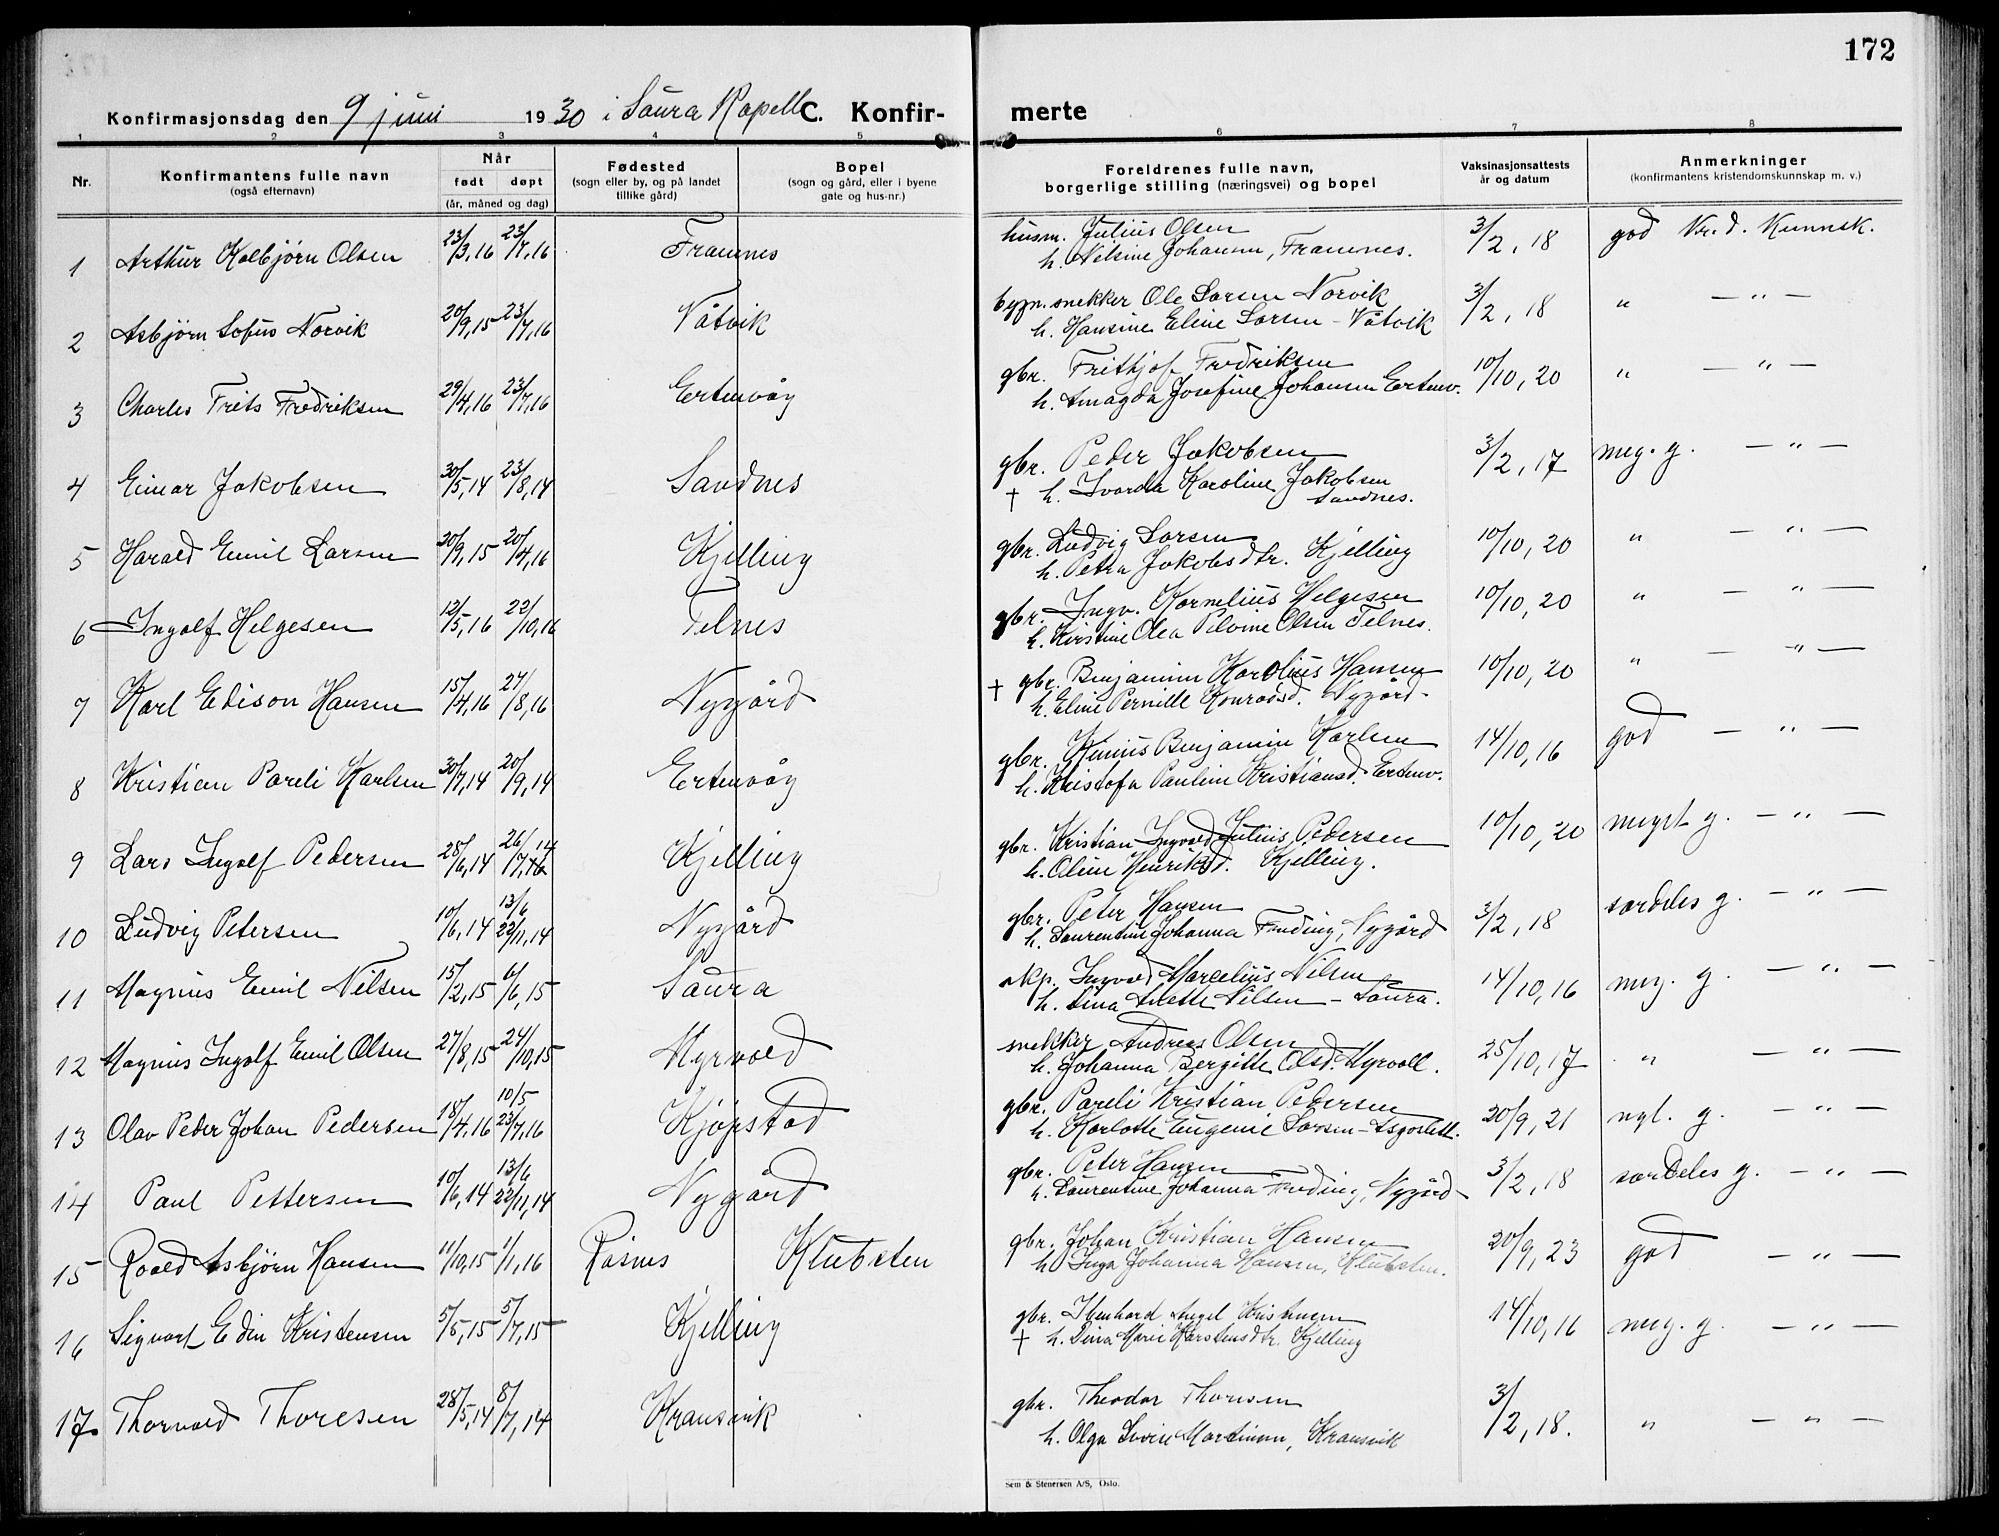 172
Konfirmasjonsdag den 9 juni 1930 i Saura Kapell C. Konfir- merte
1 2 3 4 5 6 7 8
Nr. Konfirmantens fulle navn (også efternavn) Når født døpt (år, måned og dag) Fødested (sogn eller by, og på landet tillike gård) Bopel (sogn og gård, eller i byene gate og hus-nr.) Foreldrenes fulle navn, borgerlige stilling (næringsvei) og bopel Vaksinasjonsattests år og datum Anmerkninger (konfirmantens kristendomskunnskap m. v.)
1 Arthur Kolbjørn Olsen 23/3,16 23/7,16 Framnes husm. Julius Olsen 3/2,18 god Kr.d. Kunnsk.
h. Nilsine Johansen, Framnes.
2 Asbjørn Sofus Norvik 20/9,15 23/7,16 Våtvik bygn. snekker Ole Larsen Norvik 3/2,18 " — " —
h. Hansine Eline Larsen - Våtvik
3 Charles Frits Fredriksen 29/4,16 23/7,16 Ertenvåg gbr. Frithjof Fredriksen 10/10,20 " — " —
h. Amagda Josefine Johansen Ertenv.
4 Einar Jakobsen 30/5,14 23/8,14 Sandnes gbr. Peder Jakobsen 3/2,17 meg. g. — " —
† h. Ivarda Karoline Jakobsen
Sandnes.
5 Harald Emil Larsen 20/9,15 20/4,16 Kjelling gbr. Ludvig Larsen 10/10,20 " — " —
h. Petra Jakobsdtr. Kjelling
6 Ingolf Helgesen 12/5,16 22/10,16 Telnes gbr. Ingv. Kornelius Helgesen 10/10,20 " — " —
h. Kirstine Olea Pilvine Olsen Telnes.
7 Karl Edison Hansen 15/4,16 27/8,16 Nygård † gbr. Benjamin Karolius Hansen 10/10,20 " — " —
h. Eline Pernille Konradsd. Nygård
8 Kristian Pareli Karlsen 30/7,14 20/9,14 Ertenvåg gbr. Kinius Benjamin Karlsen 14/10,16 god — " —
h. Kristofa Pauline Kristiansd. Ertenv.
9 Lars Ingolf Pedersen 28/6,14 26/7,16 14 Kjelling gbr. Kristian Ingvald Julius Pedersen 10/10,20 meget g. — " —
h. Oline Henriksd. Kjelling.
10 Ludvig Petersen 10/6,14 13/6 22/11,14 Nygård gbr. Peter Hansen 3/2,18 særdeles g. — " —
h. Laurentine Johanna Finding, Nygård
11 Magnus Emil Nilsen 15/2,15 6/6,15 Saura skp. Ingvald Marcelius Nilsen 14/10,16 meg. g. — " —
h. Lina Anette Nilsen - Saura.
12 Magnus Ingolf Emil Olsen 27/8,15 24/10,15 Myrvold snekker Andreas Olsen 25/10,17 " — " —
h. Johanna Bergitte Olsd. Myrvoll.
13 Olav Peder Johan Pedersen 18/4,16 10/5 23/7,16 Kjøpstad gbr. Pareli Kristian Pedersen 20/9,21 ngl. g. — " —
h. Karlotte Eugenie Larsen -
14 Paul Pettersen 10/6,14 13/6 22/11,14 Nygård gbr. Peter Hansen 3/2,18 særdeles g. — " —
h. Laurentine Johanna Finding, Nygård
15 Roald Asbjørn Hansen 11/10,15 1/1,16 Råsnes Klubsten gbr. Johan Kristian Hansen 20/9,23 god — " —
h Inga Johanna Hansen, Klubsten.
16 Sigvart Edin Kristensen 5/5,15 5/7,15 Kjelling gbr. Angel Kristensen 14/10,16 meg. g. — " —
† h. Lina Marie Karstensdtr. Kjelling
17 Thorvald Thoresen 28/5,14 8/7,14 Kransvik gbr. Theodor Thoresen 3/2,18. " — " —
h. Olga Lovise Martinsen, Kransvik
Sem & Stenersen A/S, Oslo.